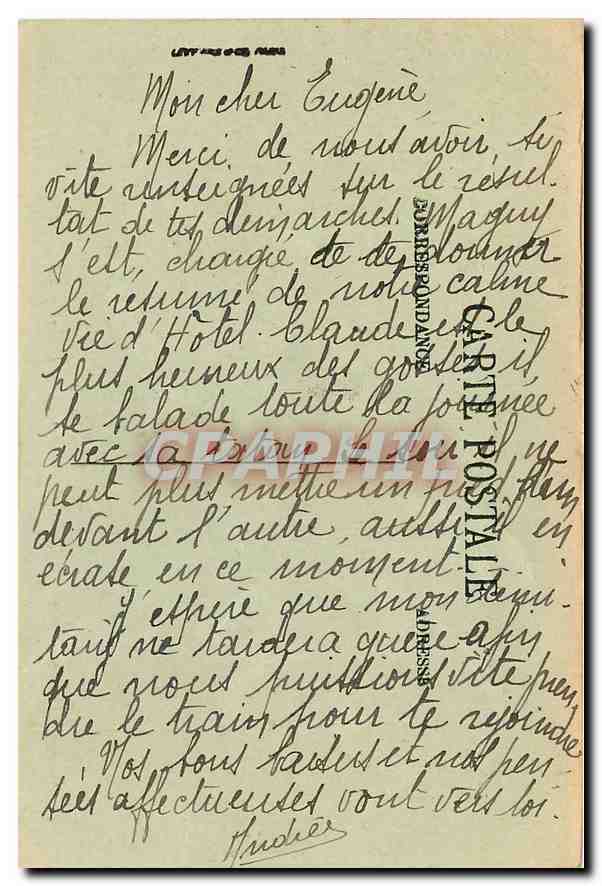 Mon cher Eugène,
Merci, de nous avoir, si
vite renseignées sur le résul-
tat de tes démarches. Maguy
s'est, chargée de te donner
le résumé de notre calme
vie d'Hôtel. Claude est le
plus heureux des gosses, il
se balade toute la journée
avec sa tatan. Le soir il ne
peut plus mettre un pied
devant l'autre, aussi il en
écrase en ce moment.
J'espère que mon
ne tardera guère afin
que nous puissions vite pren-
dre le train pour te rejoindre
Nos bons baisers et nos pen-
sées affectueuses vont vers toi.
Andrée
CARTE POSTALE
CORRESPONDANCE
ADRESSE
CPAPHIL